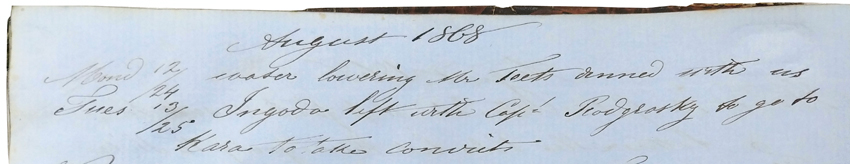 August 1868
Mond 12/24 water lowering Mr Teets dinned with us
Tues 13/25 Ingoda left with Capt Rodgrosky to go to
Kara to take convicts